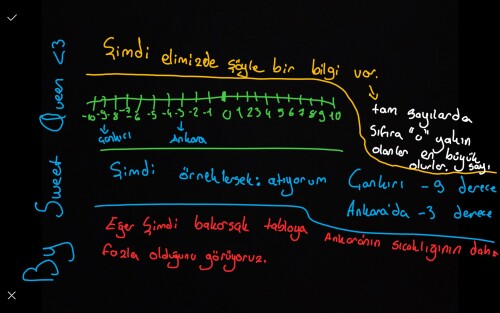 Şimdi elimizde şöyle bir bilgi var.
tam sayılarda
sıfıra "0" yakın
olanlar en büyük
olurlar. sayı
-10 -9 -8 -7 -6 -5 -4 -3 -2 -1 0 1 2 3 4 5 6 7 8 9 10
Çankırı Ankara
Şimdi örneklersek: atıyorum
Çankırı -9 derece
Ankara'da -3 derece
Eğer Şimdi bakarsak tabloya Ankara'nın sıcaklığının daha
fazla olduğunu görüyoruz.
By Sweet Queen <3